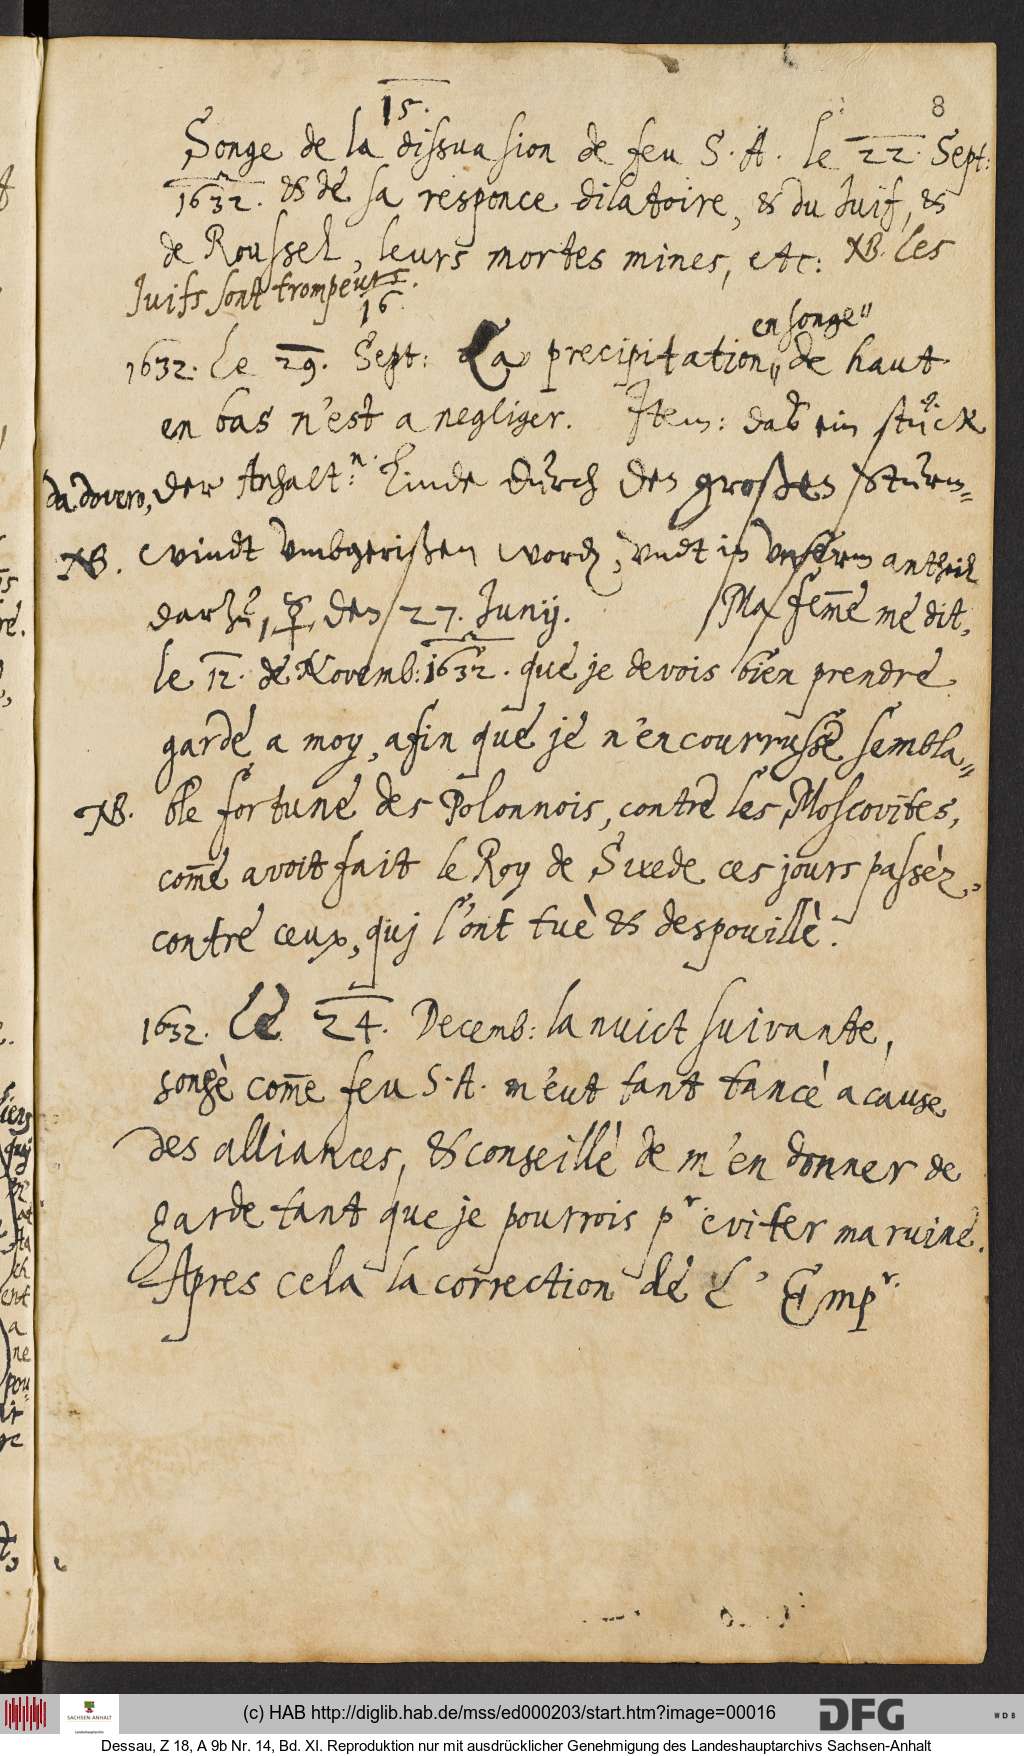 8
15.
Songe de la dissuasion de feu S. A. le 22. Sept:
1632. & de sa responce dilatoire, & du Juif, &
de Roussel, leurs mortes mines, etc: NB. Les
Juifs sont trompeurs.
16.
en songe"
1632. Le 29. Sept: La precipitation" de haut
en bas n'est a negliger. Item: daß ein stück
da dovero, der Anhalt:n Linde durch den großen Sturm=
NB. windt umbgerißen worden, undt in unserm antheil
darzu, den 27. Junij. Ma feme me dit,
le 12. de Novemb: 1632. que je devois bien prendre
garde a moy, afin que je n'encourrusse sembla=
NB. ble fortune des Polonnois, contre les Moscovites,
come avoit fait le Roy de Swede ces jours passèz,
contre ceux, quj l'ont tuè & despouillè.
1632. Le 24. Decemb: la nuict suivante,
songè come feu S. A. m'eut tant tancè a cause
des alliances, & conseillè de m'en donner de
garde tant que je pourrois pr eviter ma ruine.
Apres cela la correction de L' Empr.
(c) HAB http://diglib.hab.de/mss/ed000203/start.htm?image=00016
SACHSEN-ANHALT
DFG
WDB
Dessau, Z 18, A 9b Nr. 14, Bd. XI. Reproduktion nur mit ausdrücklicher Genehmigung des Landeshauptarchivs Sachsen-Anhalt